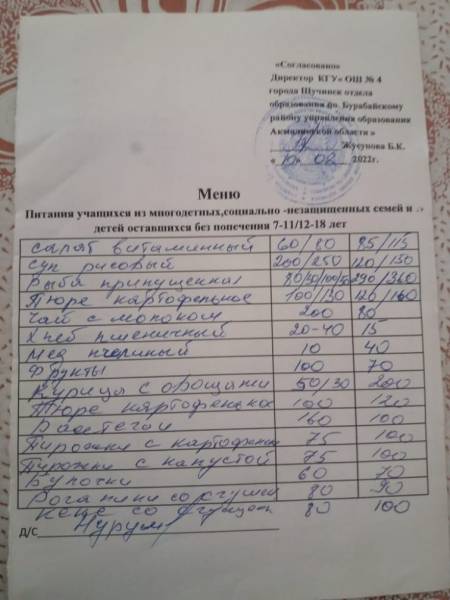 «Согласовано»
Директор КГУ« ОШ № 4
города Щучинск отдела
образования по Бурабайскому
району управления образования
Акмолинской области »
Жусупова Б.К.
« 10 » 02 2022г.
Меню
Питания учащихся из многодетных,социально -незащищенных семей и
детей оставшихся без попечения 7-11/12-18 лет
Салат витаминный 60/80 85/115
Суп рисовый 200/250 120/150
Рыба припущенная 290/360
Пюре картофельное 120/160
Чай с молоком 200 80
Хлеб пшеничный 20-40 15
Мед пчелиный 10 40
Фрукты 100 70
Курица с овощами 50/30 200
Пюре картофельное 100 120
Расстегаи 100
Пирожки с картофелем 75 100
Пирожки с капустой 75 100
Булочки 60 70
Рогалики со сгущен 80 90
Кекс со 80 100
Д/С